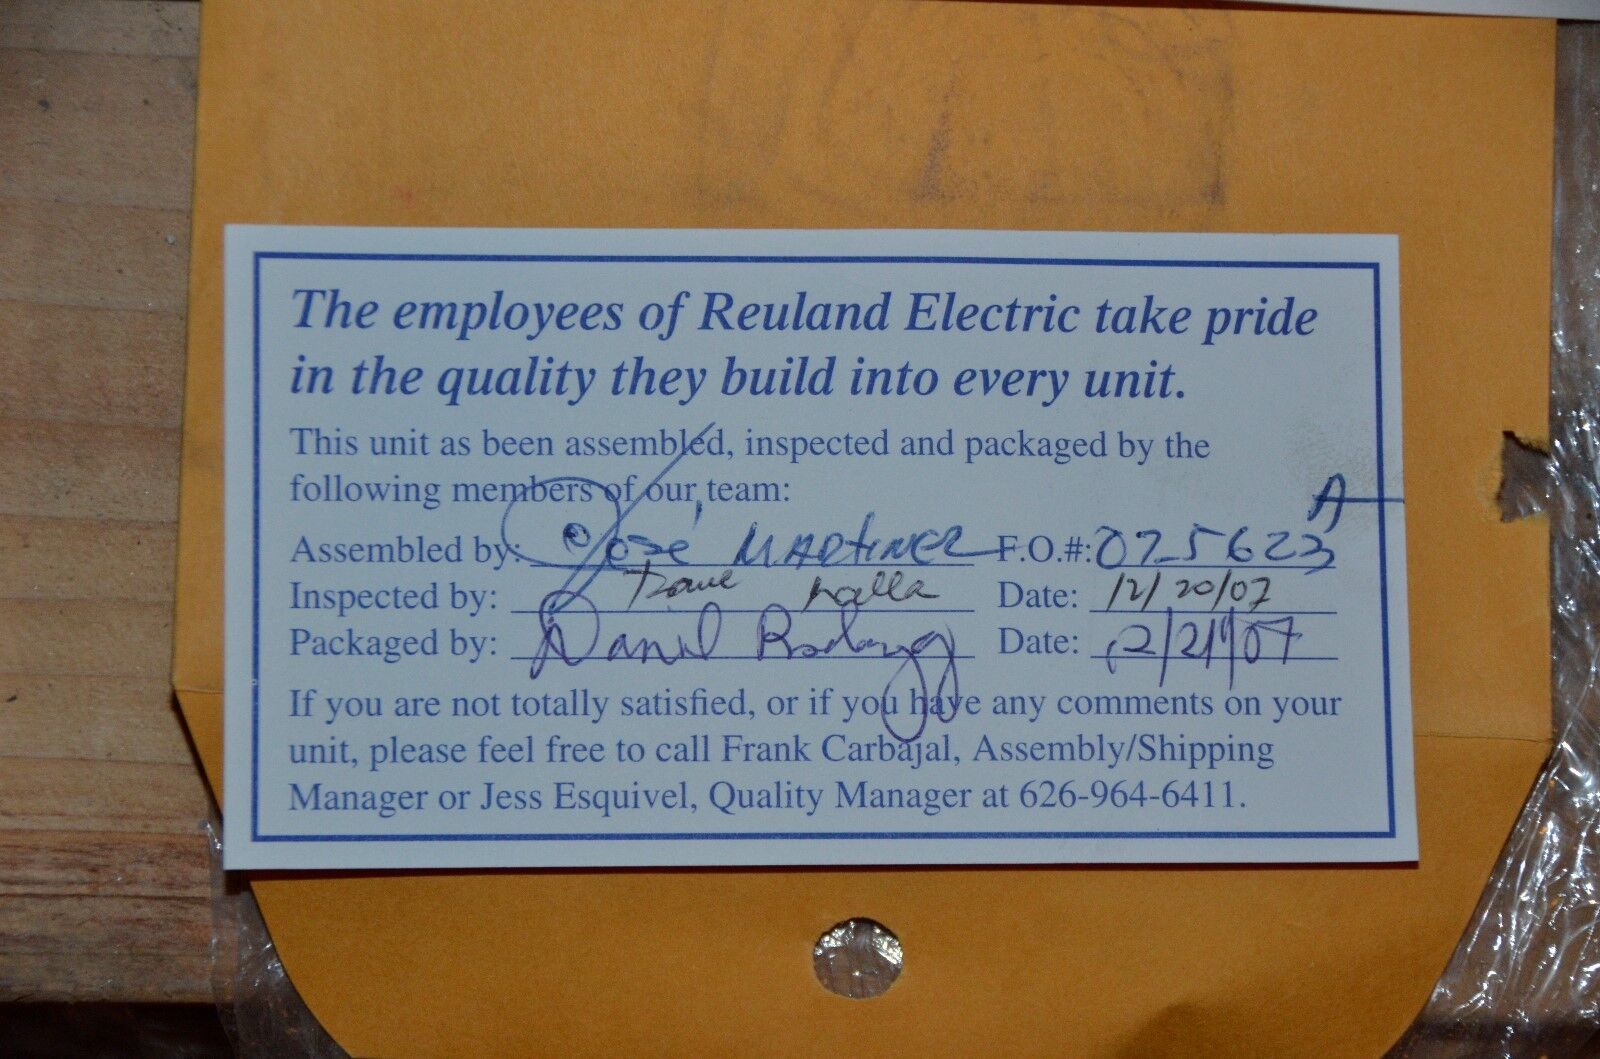 The employees of Reuland Electric take pride
in the quality they build into every unit.
This unit as been assembled, inspected and packaged by the
following members of our team:
Assembled by: José MARTINEZ F.O.#: 075623A
Inspected by: Date: 12/20/07
Packaged by: Date: 12/21/07
If you are not totally satisfied, or if you have any comments on your
unit, please feel free to call Frank Carbajal, Assembly/Shipping
Manager or Jess Esquivel, Quality Manager at 626-964-6411.